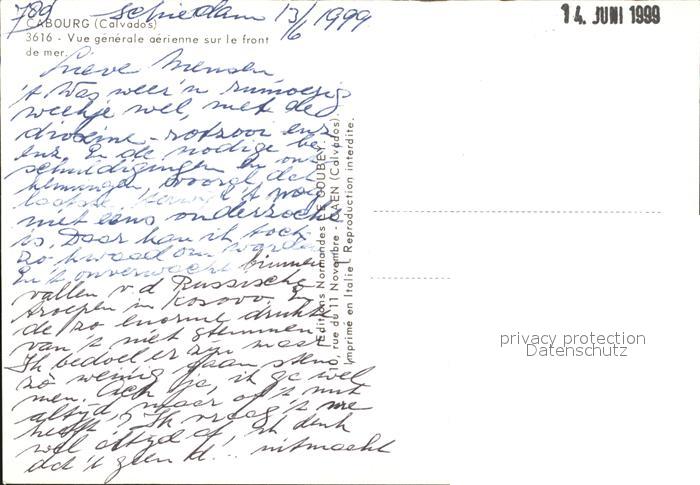 789 Schiedam 13/6 1999
14. JUNI 1999
CABOURG (Calvados)
3616 - Vue générale aérienne sur le front
de mer.
Lieve Mensen,
't Was weer 'n rumoerig
weekje wel, met de
dioxine-rotzooi enz
enz. En de nodige be
schuldigingen en ont
kenningen, vooral dat
laatste. Terwijl 't nog
niet eens onderzocht
is. Daar kan ik toch
zo kwaad om worden
En 't onverwacht binnen
vallen v.d Russische
troepen in Kosovo. En
de zo enorme drukte
van 't niet stemmen
Ik bedoel er zijn maar
zo weinig gaan stem
men. Ach ja, ik ga wel
altijd, maar of 't nut
heeft? Ik vraag 't me
wel altijd af! Ik denk
dat 't geen d. uitmaakt
Editions Normandes LE GOUBEY.
rue du 11 Novembre - CAEN (Calvados).
Imprimé en Italie. Reproduction interdite.
privacy protection
Datenschutz